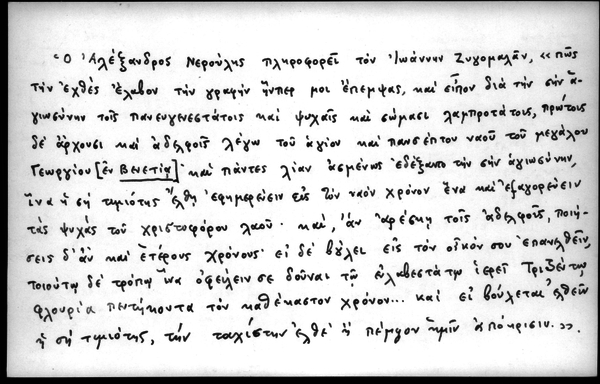 Ὁ Ἀλέξανδρος Νερούλης πληροφορεῖ τὸν Ἰωάννην Ζυγομαλᾶν, «πῶς
τὴν ἐχθὲς ἔλαβον τὴν γραφὴν ἥνπερ μοι ἔπεμψας, καὶ εἶπον διὰ τὴν σὴν ἁ-
γιωσύνην τοῖς πανευγενεστάτοις καὶ ψυχαῖς καὶ σώμασι λαμπροτάτοις, πρώτοις
δὲ ἄρχουσι καὶ ἀδελφοῖς λέγω τοῦ ἁγίου καὶ πανσέπτου ναοῦ τοῦ μεγάλου
Γεωργίου [ἐν Βενετίᾳ] καὶ πάντες λίαν ἀσμένως ἐδέξαντο τὴν σὴν ἁγιωσύνην,
ἵνα ἡ σὴ τιμιότης ἔλθῃ ἐφημερεύειν εἰς τὸν ναὸν χρόνον ἕνα καὶ ἐξαγορεύειν
τὰς ψυχὰς τοῦ χριστοφόρου λαοῦ· καὶ, ἂν ἀρέσκῃ τοῖς ἀδελφοῖς, ποιή-
σεις δ' ἂν καὶ ἑτέρους χρόνους· εἰ δὲ βούλει εἰς τὸν οἶκόν σου ἐπανελθεῖν,
τοιούτῳ δὲ τρόπῳ ἵνα ὀφείλειν σε δοῦναι τῷ εὐλαβεστάτῳ ἱερεῖ Τριζέντῳ
φλουρία πεντήκοντα τὸν καθέκαστον χρόνον... καὶ εἰ βούλεται ἐλθεῖν
ἡ σὴ τιμιότης, τὴν ταχίστην ἐλθὲ ἢ πέμψον ἡμῖν ἀπόκρισιν.».